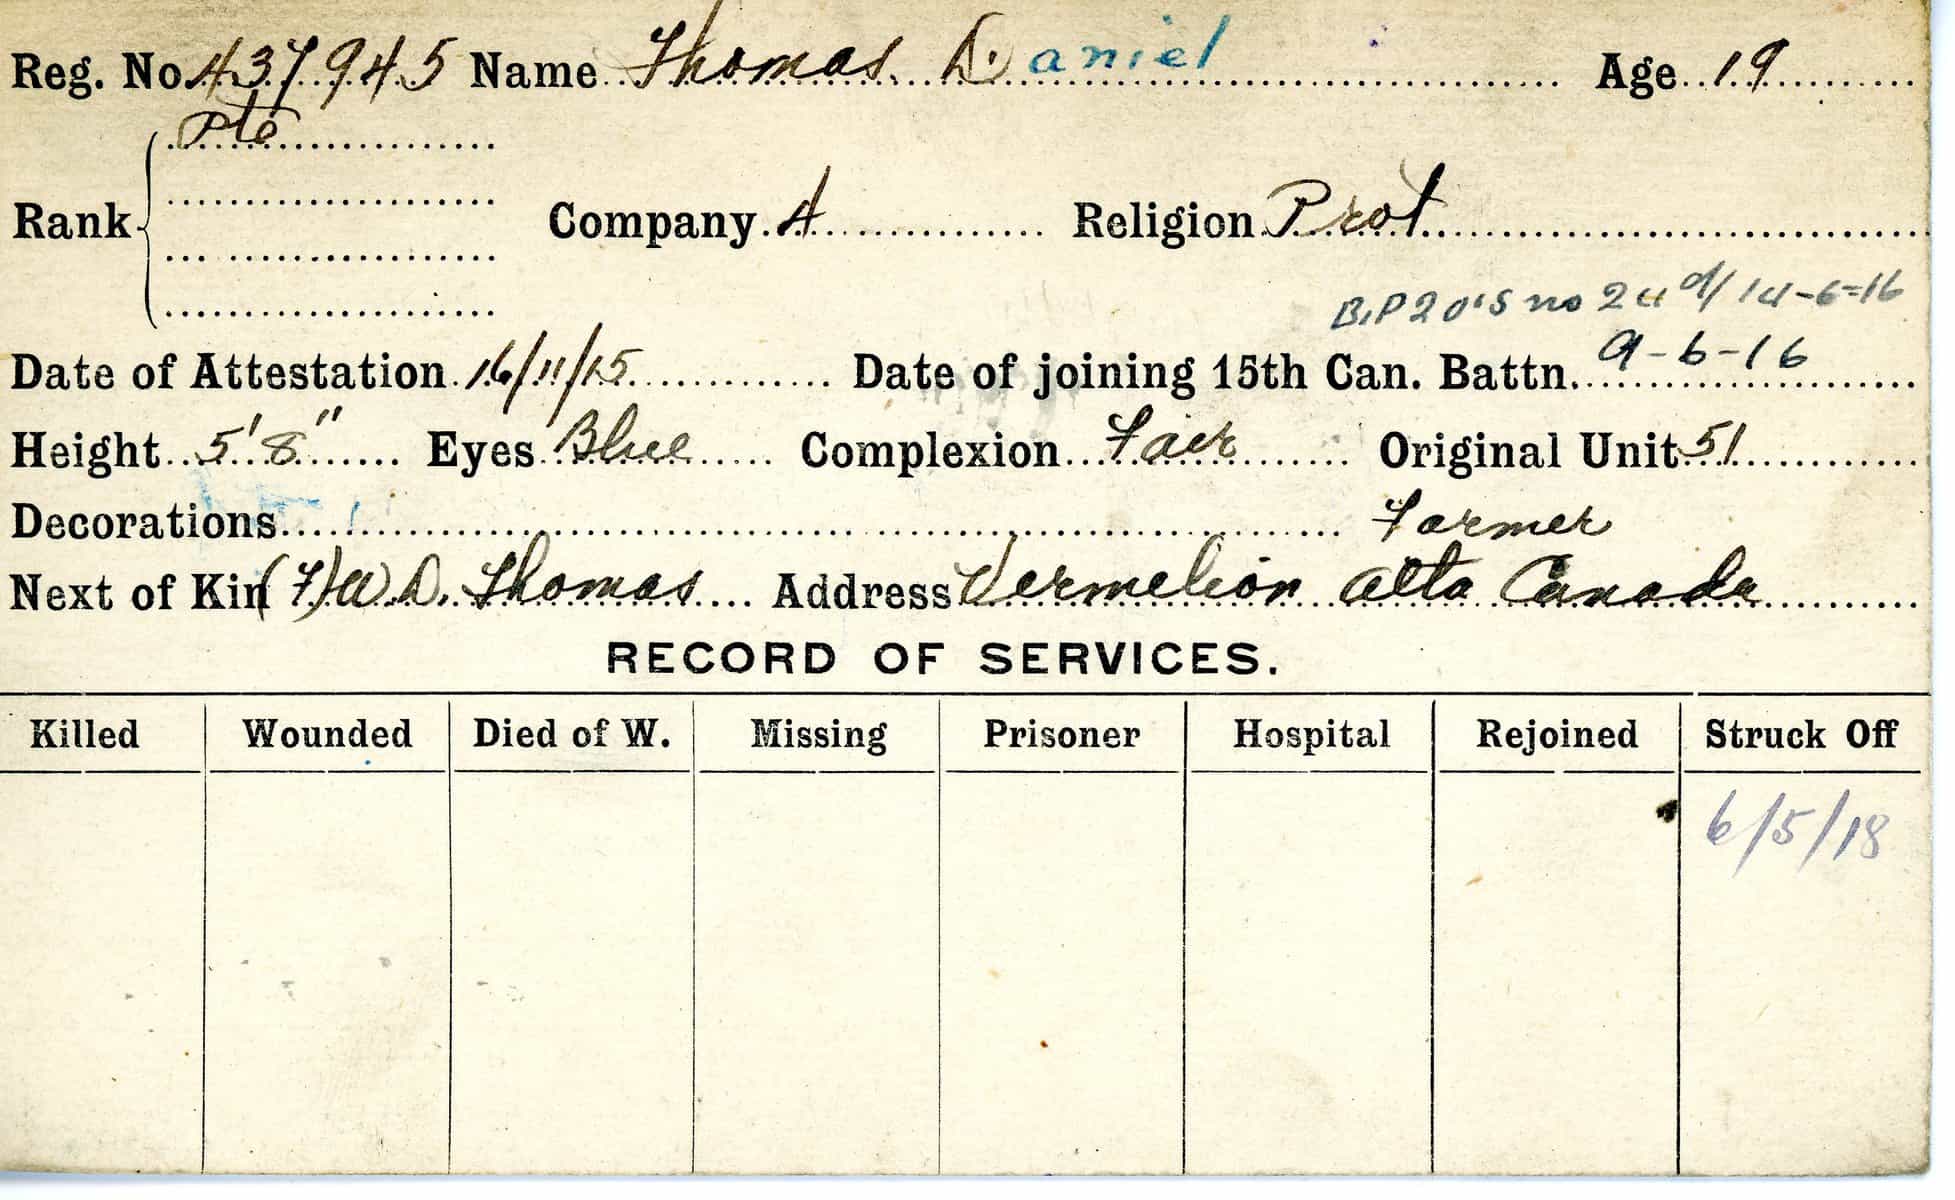 Reg. No. 437945 Name Thomas D. aniel Age 19
Pte
Rank Company A Religion Prot
B,P 20's no 24 d/ 14-6=16
Date of Attestation 16/11/15 Date of joining 15th Can. Battn. 9-6-16
Height 5'8" Eyes Blue Complexion Fair Original Unit 51
Decorations Farmer
Next of Kin (F) W D. Thomas Address Vermelion Alta Canada
RECORD OF SERVICES.
Killed Wounded Died of W. Missing Prisoner Hospital Rejoined Struck Off
6/5/18